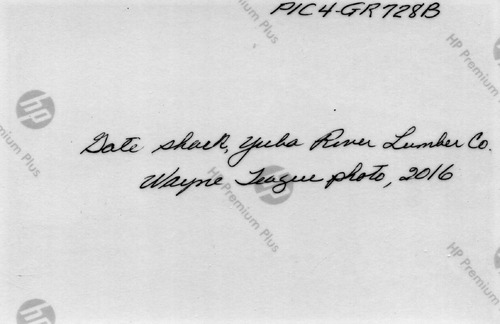 PIC4-GR728B
Gate shack, Yuba River Lumber Co.
Wayne Teague photo, 2016
hp
HP Premium Plus
hp
HP Premium Plus
hp
HP Premium Plus
hp
HP Premium Plus
hp